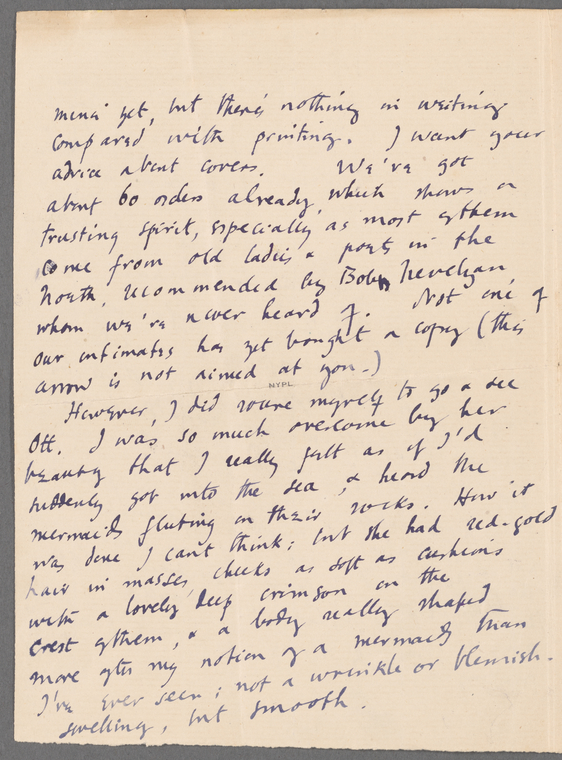 mind yet, but there's nothing in writing
compared with printing. I want your
advice about covers. We've got
about 60 orders already, which shows a
trusting spirit, especially as most of them
come from old ladies & poets in the
North, recommended by Bob Trevelyan
whom we've never heard of. Not one of
our intimates has yet bought a copy (this
arrow is not aimed at you.)
NYPL
However, I did rouse myself to go & see
Ott. I was so much overcome by her
beauty that I really felt as if I'd
suddenly got into the sea, & heard the
mermaids fluting on their rocks. How it
was done I cant think; but she had red-gold
hair in masses, cheeks as soft as cushions
with a lovely deep crimson on the
crest of them, & a body really shaped
more after my notion of a mermaids than
I've ever seen; not a wrinkle or blemish.
swelling, but smooth.